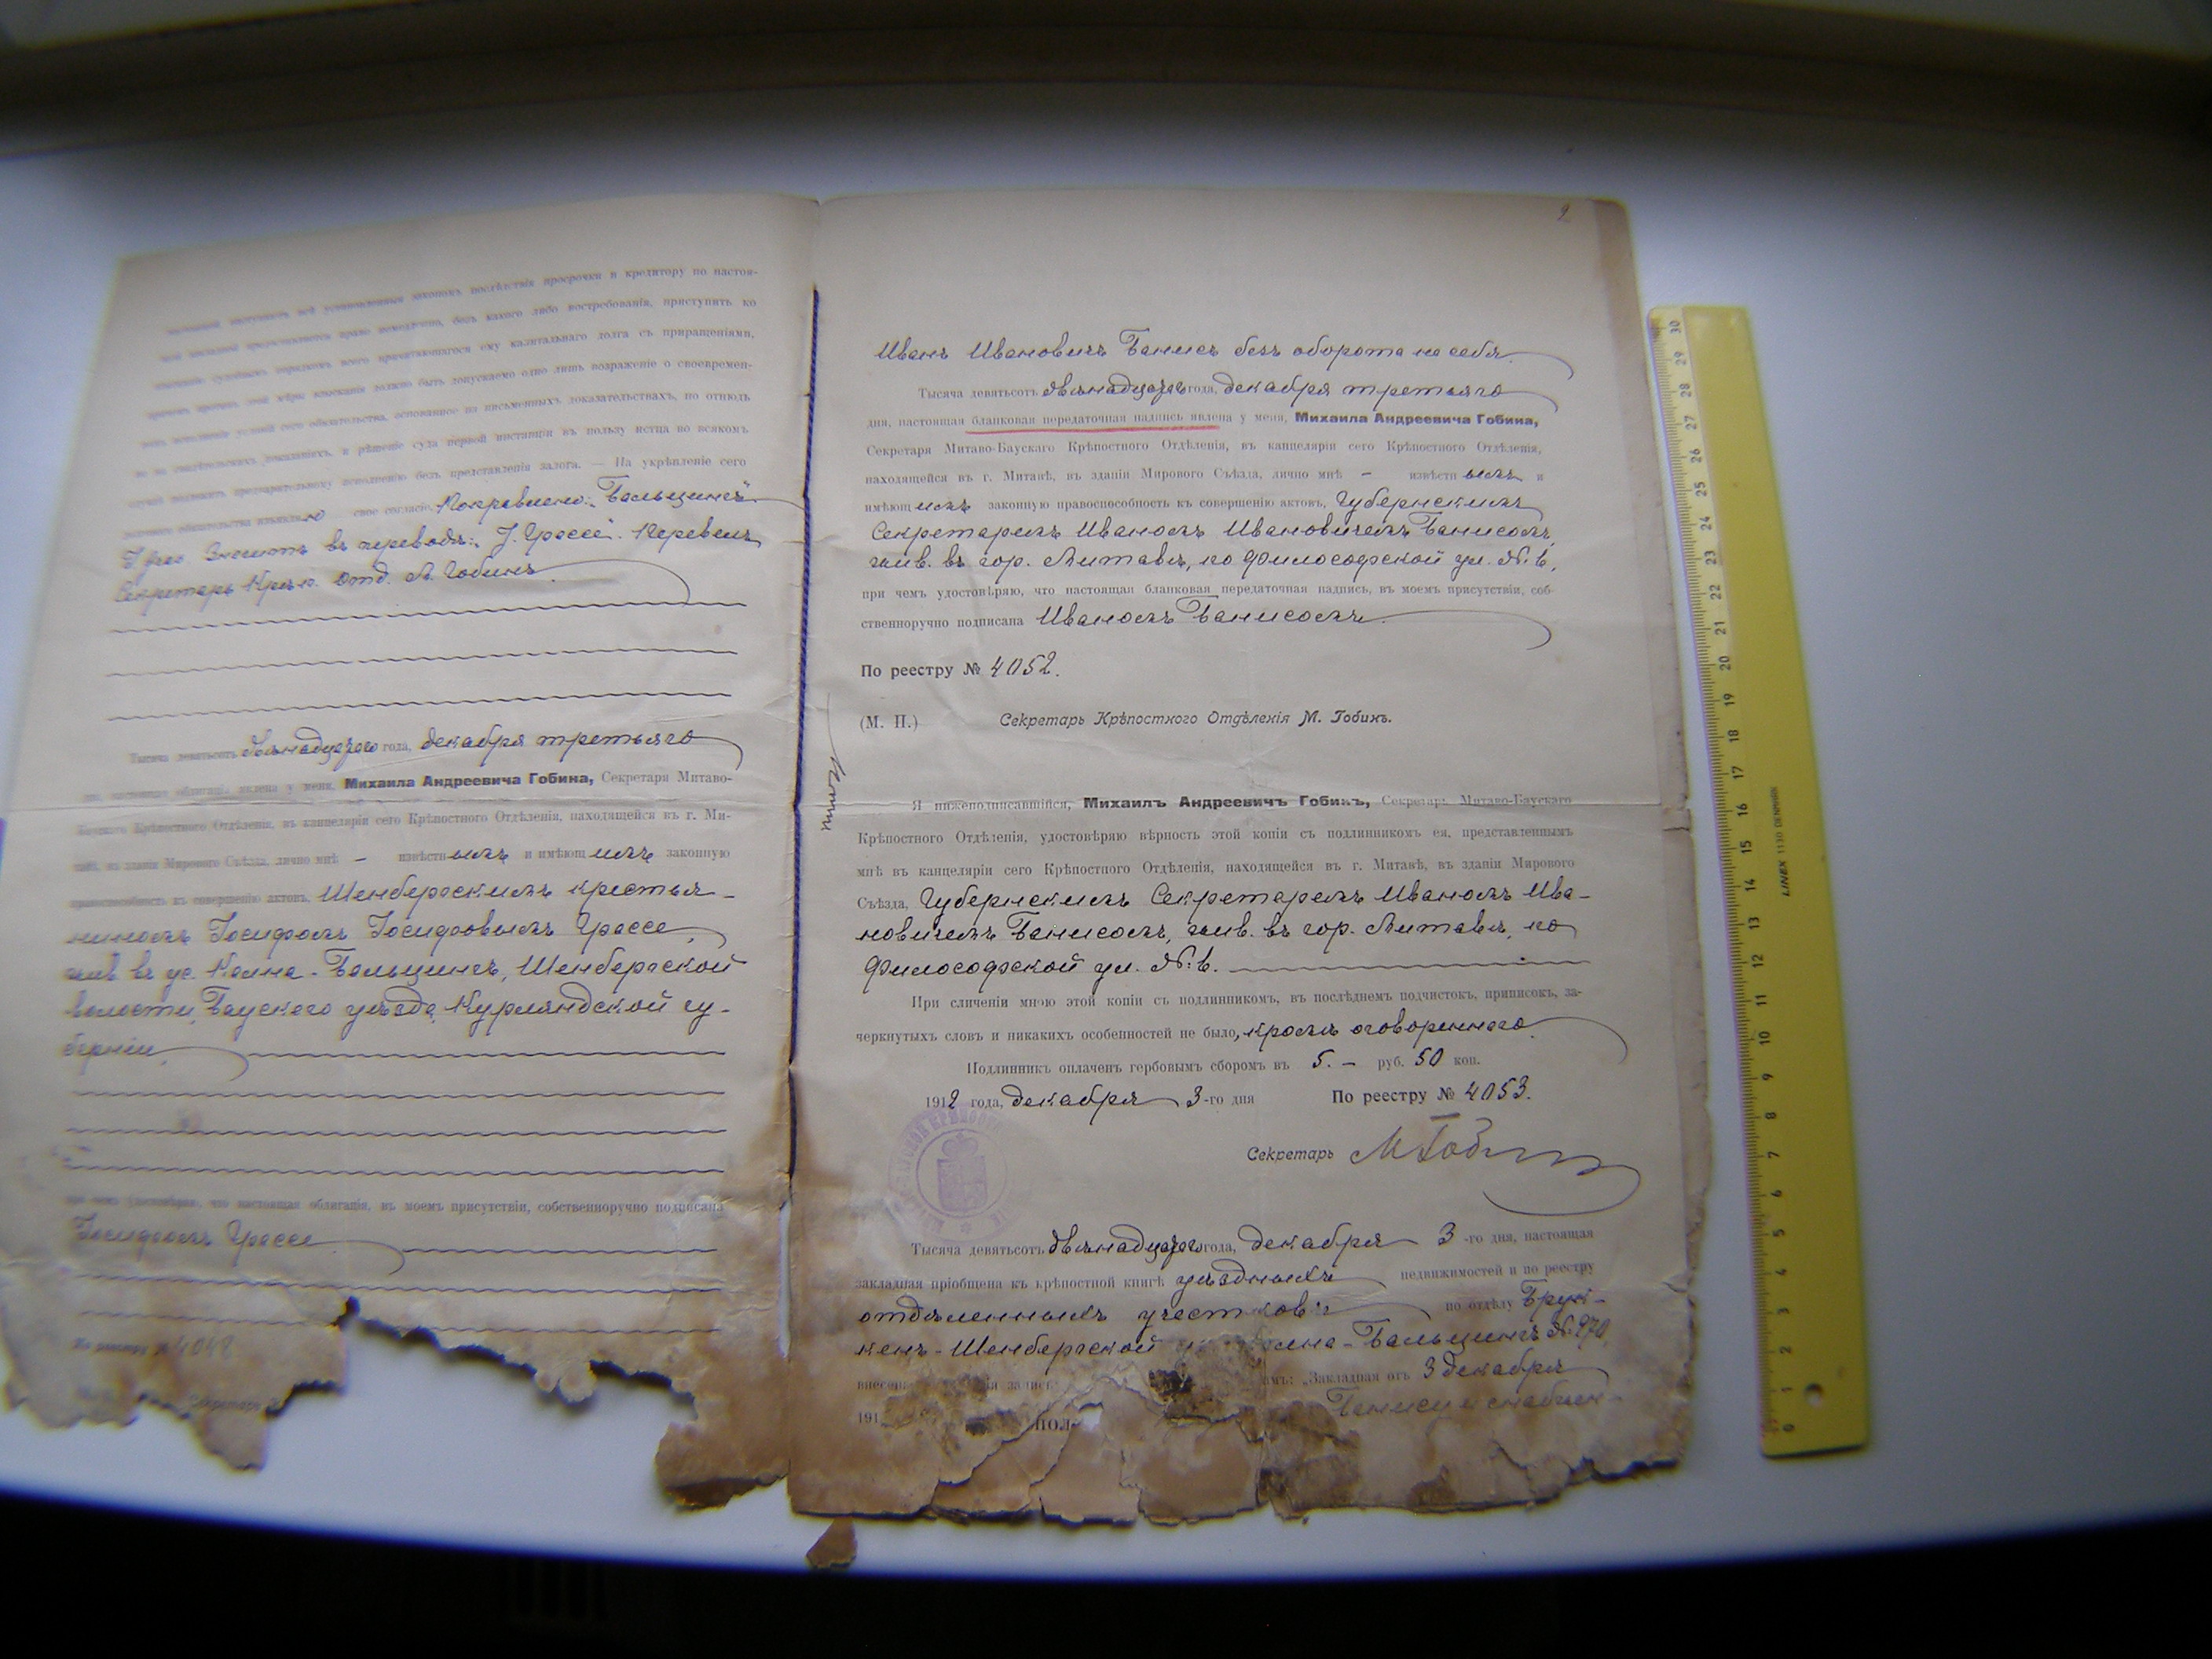 наступаютъ всѣ установленныя закономъ послѣдствія просрочки и кредитору по настоя-
щей закладной предоставляется право немедленно, безъ какого либо востребованія, приступить ко
взысканію судебнымъ порядкомъ всего причитающагося ему капитальнаго долга съ приращеніями,
причемъ противъ сей мѣры взысканія должно быть допускаемо одно лишь возраженіе о своевремен-
номъ исполненіи условій сего обязательства, основанное на письменныхъ доказательствахъ, но отнюдь
не на свидѣтельскихъ показаніяхъ, и рѣшеніе суда первой инстанціи въ пользу истца во всякомъ
случаѣ подлежитъ предварительному исполненію безъ представленія залога. — На укрѣпленіе сего
свое согласіе. Поправлено: „Бальцингъ“
Значитъ въ переводѣ: „І. Грассе“. Перевелъ
Секретарь Крѣп. Отд. М. Гобинъ.
Тысяча девятьсотъ двѣнадцатаго года, декабря третьяго
дня, настоящая облигація явлена у меня, Михаила Андреевича Гобина, Секретаря Митаво-
Баускаго Крѣпостного Отдѣленія, въ канцеляріи сего Крѣпостного Отдѣленія, находящейся въ г. Ми-
тавѣ, въ зданіи Мирового Съѣзда, лично мнѣ – извѣстнымъ и имѣющимъ законную
правоспособность къ совершенію актовъ, Шенбергскимъ крестья-
ниномъ Іосифомъ Іосифовымъ Грассе,
жив. въ ус. Кална-Бальцингъ, Шенбергской
волости, Баускаго уѣзда, Курляндской гу-
берніи,
при чемъ удостовѣряю, что настоящая облигація, въ моемъ присутствіи, собственноручно подписана
Іосифомъ Грассе
По реестру № 4048
Секретарь
2
Иванъ Ивановичъ Банисъ безъ оборота на себя.
Тысяча девятьсотъ двѣнадцатаго года, декабря третьяго
дня, настоящая бланковая передаточная надпись явлена у меня, Михаила Андреевича Гобина,
Секретаря Митаво-Баускаго Крѣпостного Отдѣленія, въ канцеляріи сего Крѣпостного Отдѣленія,
находящейся въ г. Митавѣ, въ зданіи Мирового Съѣзда, лично мнѣ – извѣстнымъ и
имѣющимъ законную правоспособность къ совершенію актовъ, Губернскимъ
Секретаремъ Иваномъ Ивановичемъ Банисомъ,
жив. въ гор. Митавѣ, по Философской ул. №. 6,
при чемъ удостовѣряю, что настоящая бланковая передаточная надпись, въ моемъ присутствіи, соб-
ственноручно подписана Иваномъ Банисомъ.
По реестру № 4052.
(М. П.) Секретарь Крѣпостного Отдѣленія М. Гобинъ.
Я нижеподписавшійся, Михаилъ Андреевичъ Гобинъ, Секретарь Митаво-Баускаго
Крѣпостного Отдѣленія, удостовѣряю вѣрность этой копіи съ подлинникомъ ея, представленнымъ
мнѣ въ канцеляріи сего Крѣпостного Отдѣленія, находящейся въ г. Митавѣ, въ зданіи Мирового
Съѣзда, Губернскимъ Секретаремъ Иваномъ Ива-
новичемъ Банисомъ, жив. въ гор. Митавѣ, по
Философской ул. №. 6.
При сличеніи мною этой копіи съ подлинникомъ, въ послѣднемъ подчистокъ, приписокъ, за-
черкнутыхъ словъ и никакихъ особенностей не было, кромѣ оговореннаго.
Подлинникъ оплаченъ гербовымъ сборомъ въ 5. – руб. 50 коп.
1912 года, декабря 3-го дня По реестру № 4053.
Секретарь МГобин
Тысяча девятьсотъ двѣнадцатаго года, декабря 3-го дня, настоящая
закладная пріобщена къ крѣпостной книгѣ уѣздныхъ недвижимостей и по реестру
отдѣленныхъ участковъ по отдѣлу Брук-
кенъ-Шенбергской Бальцингъ №. 270
внесена записъ: „Закладная отъ 3 декабря
191 пол Банису и снабжен-
LINEX 1130 DENMARK
0 1 2 3 4 5 6 7 8 9 10 11 12 13 14 15 16 17 18 19 20 21 22 23 24 25 26 27 28 29 30